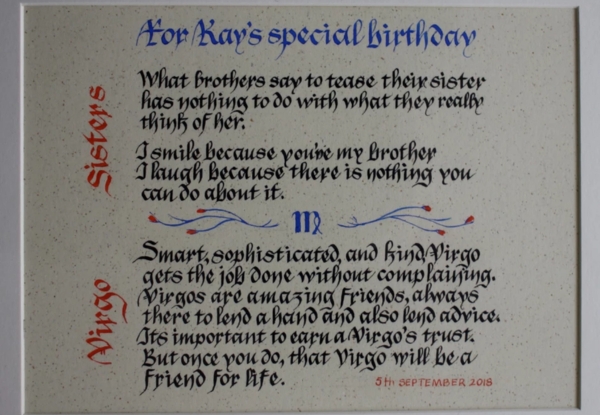 For Kay's special birthday
Sisters
What brothers say to tease their sister
has nothing to do with what they really
think of her.
I smile because you're my brother
I laugh because there is nothing you
can do about it.
♍
Virgo
Smart, sophisticated, and kind, Virgo
gets the job done without complaining.
Virgos are amazing friends, always
there to lend a hand and also lend advice.
Its important to earn a Virgo's trust.
But once you do, that Virgo will be a
friend for life.
5th SEPTEMBER 2018